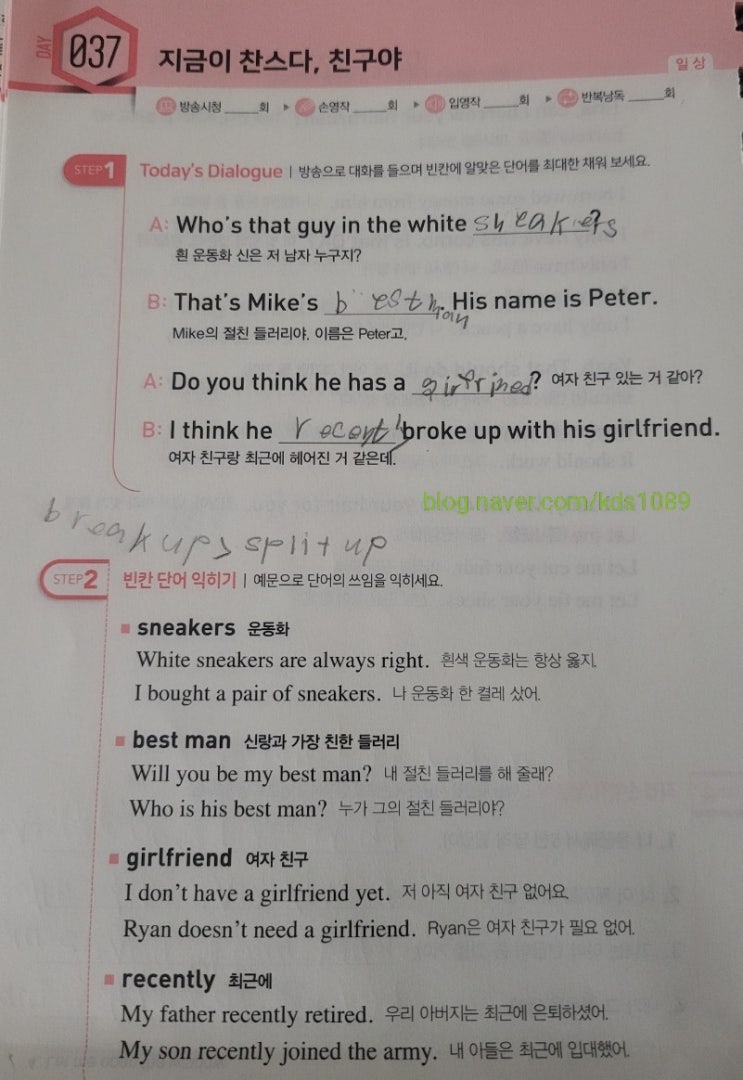 DAY 037 지금이 찬스다, 친구야
일상
방송시청 ____회 ▶ 손영작 ____회 ▶ 입영작 ____회 ▶ 반복낭독 ____회
STEP1 Today's Dialogue | 방송으로 대화를 들으며 빈칸에 알맞은 단어를 최대한 채워 보세요.
A: Who's that guy in the white sneakers?
흰 운동화 신은 저 남자 누구지?
B: That's Mike's best man. His name is Peter.
Mike의 절친 들러리야. 이름은 Peter고.
A: Do you think he has a girlfrined? 여자 친구 있는 거 같아?
B: I think he recently broke up with his girlfriend.
여자 친구랑 최근에 헤어진 거 같은데.
blog.naver.com/kds1089
break up > split up
STEP2 빈칸 단어 익히기 | 예문으로 단어의 쓰임을 익히세요.
■ sneakers 운동화
White sneakers are always right. 흰색 운동화는 항상 옳지.
I bought a pair of sneakers. 나 운동화 한 켤레 샀어.
■ best man 신랑과 가장 친한 들러리
Will you be my best man? 내 절친 들러리를 해 줄래?
Who is his best man? 누가 그의 절친 들러리야?
■ girlfriend 여자 친구
I don't have a girlfriend yet. 저 아직 여자 친구 없어요.
Ryan doesn't need a girlfriend. Ryan은 여자 친구가 필요 없어.
■ recently 최근에
My father recently retired. 우리 아버지는 최근에 은퇴하셨어.
My son recently joined the army. 내 아들은 최근에 입대했어.